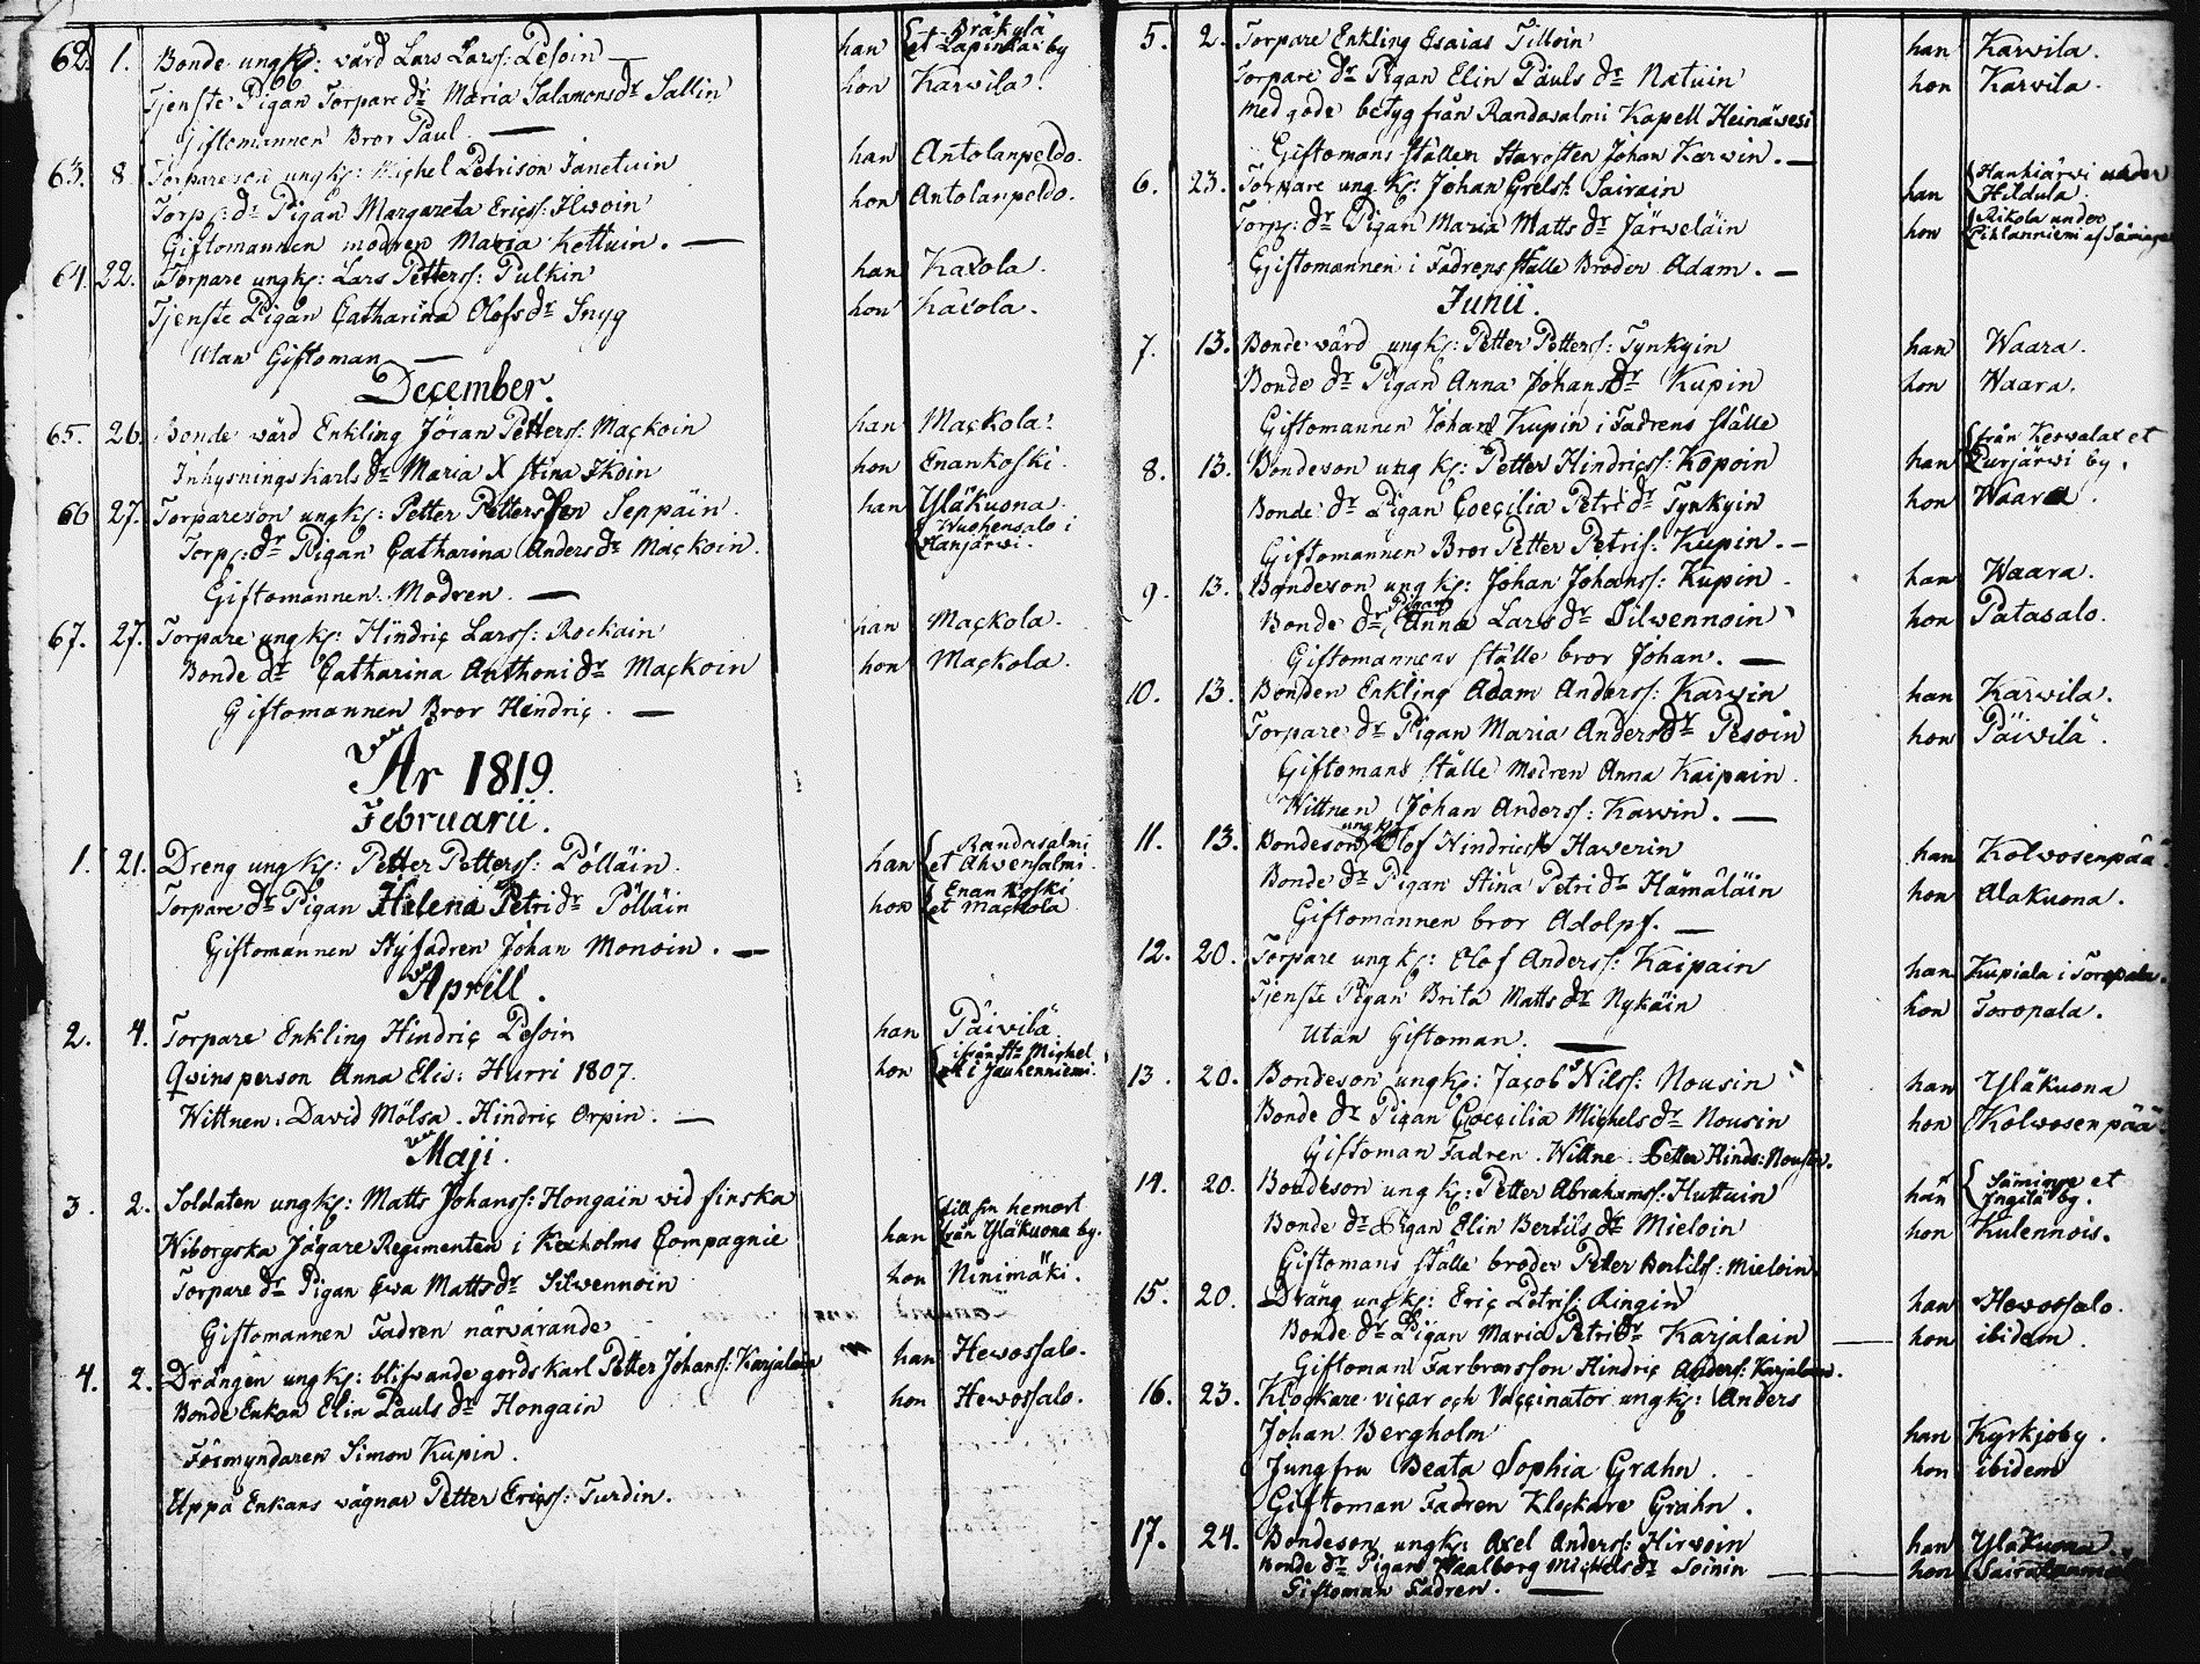 62. 1. Bonde ungk: värd Lars Larss: Pesoin — han Bräkylä et Lapinlax by
Tjenste Pigan Torpare dr Maria Salamons dr Sallin hon Karvila.
Giftomannen Bror Paul. —
63. 8 Torpareson ungk: Michel Petrison Janetuin han Antolanpeldo.
Torp: dr Pigan Margareta Ericss: Ilwoin hon Antolanpeldo.
Giftomannen modren Maria Kettuin. —
64. 22. Torpare ungk: Lars Petterss: Pulkin han Kaxola.
Tjenste Pigan Catharina Olofs dr Snyg hon Kaxola.
Utan Giftoman —
December.
65. 26. Bonde värd Enkling Jöran Petterss: Mackoin han Mackola.
Inhysnings karls dr Maria Stina Ikoin hon Enankoski.
66 27. Torpareson ungk: Petter Petterssen Seppäin. han Yläkuona.
Torp: dr Pigan Catharina Anders dr Mackoin. Wuohensalo i Hanjärwi.
Giftomannen Modren. —
67. 27. Torpare ungk: Hindric Larss: Rockain han Mackola.
Bonde dr Catharina Anthoni dr Mackoin hon Mackola.
Giftomannen Bror Hindric. —
År 1819.
Februarii.
1. 21. Dreng ungk: Petter Petterss: Pölläin. han Randasalmi et Ahvensalmi.
Torpare dr Pigan Helena Petri dr Pölläin hon Enankoski et Mackola
Giftomannen Styfadren Johan Monoin. —
Aprill.
2. 4. Torpare Enkling Hindric Pesoin han Päivilä.
Qvinsperson Anna Elis: Hurri 1807. hon ifrån St: Michel et i Jauhenniemi.
Wittnen: David Mölsa. Hindric Orpin. —
Maji.
3. 2. Soldaten ungk: Matts Johanss: Hongain vid finska
Wiborgska Jägare Regimenten i Kexholms Compagnie han till sin hemort från Yläkuona by.
Torpare dr Pigan Ewa Matts dr Silwennoin hon Ninimäki.
Giftomannen Fadren närvarande
4. 2. Drängen ungk: blifvande gårdskarl Petter Johanss: Karjalain han Hevossalo.
Bonde Enkan Elin Pauls dr Hongain hon Hevossalo.
Förmyndaren Simon Kupin.
Uppå Enkans vägnar Petter Ericss: Turdin.
5. 2. Torpare Enkling Esaias Tilloin han Karvila.
Torpare dr Pigan Elin Pauls dr Natuin hon Karvila.
med gode betyg från Randasalmi Kapell Heinäwesi
Giftomans ställen Starosten Johan Karvin. —
6. 23. Torpare ung k: Johan Grelss: Sairain han Hanhiärwi under Hildula.
Torp: dr Pigan Maria Matts dr Järweläin hon Rikola under Pihlanniemi af Säminge
Giftomannen i Fadrens ställe Broder Adam. —
Junii.
7. 13. Bonde värd ungk: Petter Petterss: Tynkyin han Waara.
Bonde dr Pigan Anna Johans dr Kupin hon Waara.
Giftomannen Johan Kupin i Fadrens ställe
8. 13. Bondeson ung k: Petter Hindricss: Kopoin han från Kesvalax et Purjärwi by.
Bonde dr Pigan Coecilia Petri dr Tynkyin hon Waara.
Giftomannen Bror Petter Petris: Kupin. —
9. 13. Bondeson ung k: Johan Johanss: Kupin han Waara.
Bonde dr Pigan Anna Lars dr Silwennoin hon Patasalo.
Giftomannens ställe bror Johan. —
10. 13. Bonden Enkling Adam Anderss: Karvin han Karvila.
Torpare dr Pigan Maria Anders dr Pesoin hon Päivilä.
Giftomans ställe Modren Anna Kaipain.
Wittnen Johan Anderss: Karvin. —
11. 13. Bondeson ungk Olof Hindricss Haverin han Kolvosenpää
Bonde dr Pigan Stina Petri dr Hämäläin hon Alakuona.
Giftomannen bror Adolpf. —
12. 20. Torpare ungk: Olof Anderss: Kaipain han Kupiala i Toropala.
Tjenste Pigan Brita Matts dr Nykäin hon Toropala.
Utan Giftoman. —
13. 20. Bondeson ungk: Jacob Nilss: Nousin han Yläkuona
Bonde dr Pigan Coecilia Michels dr Nousin hon Kolvosenpää
Giftoman Fadren. Wittne Petter Hinds: Nousin.
14. 20. Bondeson ung k: Petter Abrahamss: Huttuin han Säminge et Yngilä by.
Bonde dr Pigan Elin Bertils dr Mieloin hon Kulennois.
Giftomans ställe broder Peter Bertilss: Mieloin.
15. 20. Dräng ungk: Eric Petris: Ringin han Hevossalo.
Bonde dr Pigan Maria Petri dr Karjalain — hon ibidem.
Giftoman Farbrorsson Hindric Anderss: Karjalain.
16. 23. Klockare vicar och Vaccinator ungk: Anders
Johan Bergholm han Kyrkjoby.
Jungfru Beata Sophia Grahn. hon ibidem
Giftoman Fadren Klockare Grahn.
17. 24. Bondeson ungk: Axel Anderss: Hirvoin han Yläkuona.
Bonde dr Pigan Waalborg Michels dr Soinin — hon
Giftoman Fadren. —